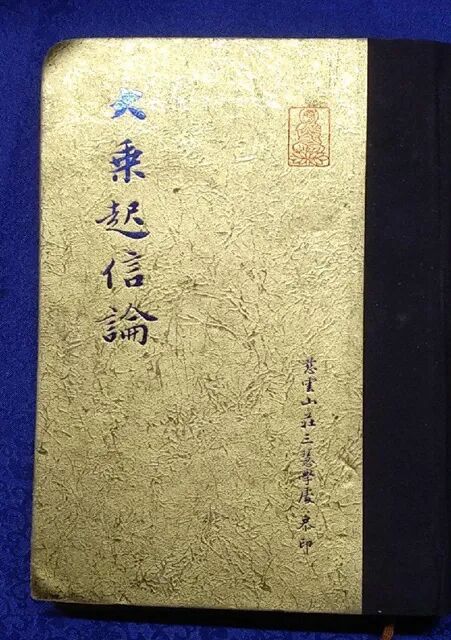 大乘起信論
慈雲山莊三慧學處 恭印